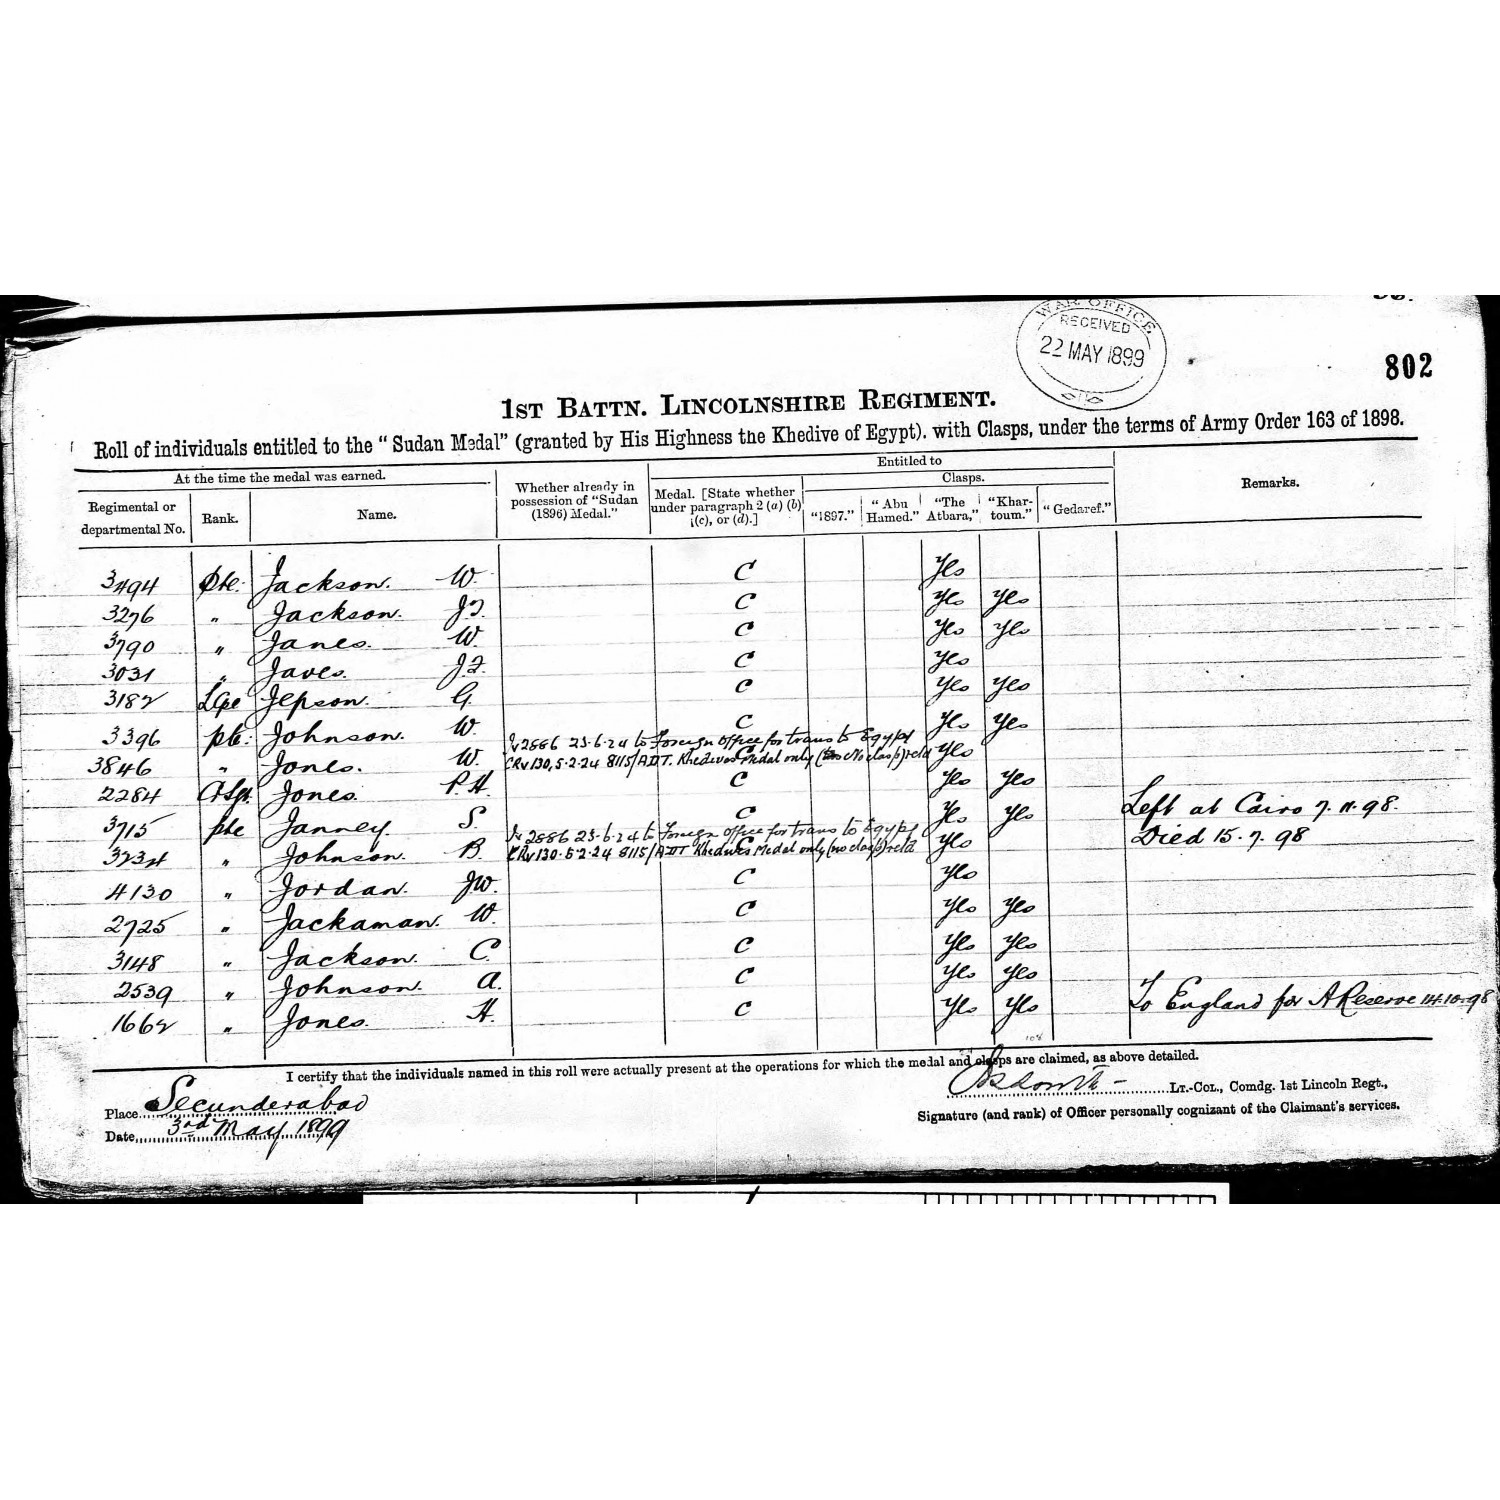 WAR OFFICE
RECEIVED
22 MAY 1899
802
1ST BATTN. LINCOLNSHIRE REGIMENT.
Roll of individuals entitled to the "Sudan Medal" (granted by His Highness the Khedive of Egypt), with Clasps, under the terms of Army Order 163 of 1898.
At the time the medal was earned.
Regimental or departmental No.
Rank.
Name.
Whether already in possession of "Sudan (1896) Medal."
Entitled to
Medal. [State whether under paragraph 2 (a) (b) (c), or (d).]
Clasps.
"1897."
"Abu Hamed."
"The Atbara,"
"Khartoum."
"Gedaref."
Remarks.
3494 Pte. Jackson. W. C Yes
3276 " Jackson. J.T. C Yes Yes
3790 " Janes. W. C Yes Yes
3031 " Javes. J.F. C Yes
3182 LCpe Jepson. G. C Yes Yes
3396 pte. Johnson. W. C Yes Yes
Iv 2886 23-6-24 to Foreign Office for trans to Egypt
3846 " Jones. W. CRv 130, 5-2-24 8115/ADT. Khedives Medal only (No clasp) retd C Yes
2284 CrSgt. Jones. P.H. C Yes Yes Left at Cairo 7.11.98.
3715 pte Janney S. C Yes Yes Died 15.7.98
Iv 2886 23-6-24 to Foreign Office for trans to Egypt
3234 " Johnson. B. CRv 130-5-2-24 8115/ADT Khedives Medal only (no clasp) retd C Yes
4130 " Jordan. J.W. C Yes
2725 " Jackaman. W. C Yes Yes
3148 " Jackson. C. C Yes Yes
2539 " Johnson. A. C Yes Yes
1662 " Jones. H. C Yes Yes To England for A Reserve 14.10.98
108
I certify that the individuals named in this roll were actually present at the operations for which the medal and clasps are claimed, as above detailed.
Place Secunderabad
LT.-COL., Comdg. 1st Lincoln Regt.,
Date 3rd May 1899
Signature (and rank) of Officer personally cognizant of the Claimant's services.